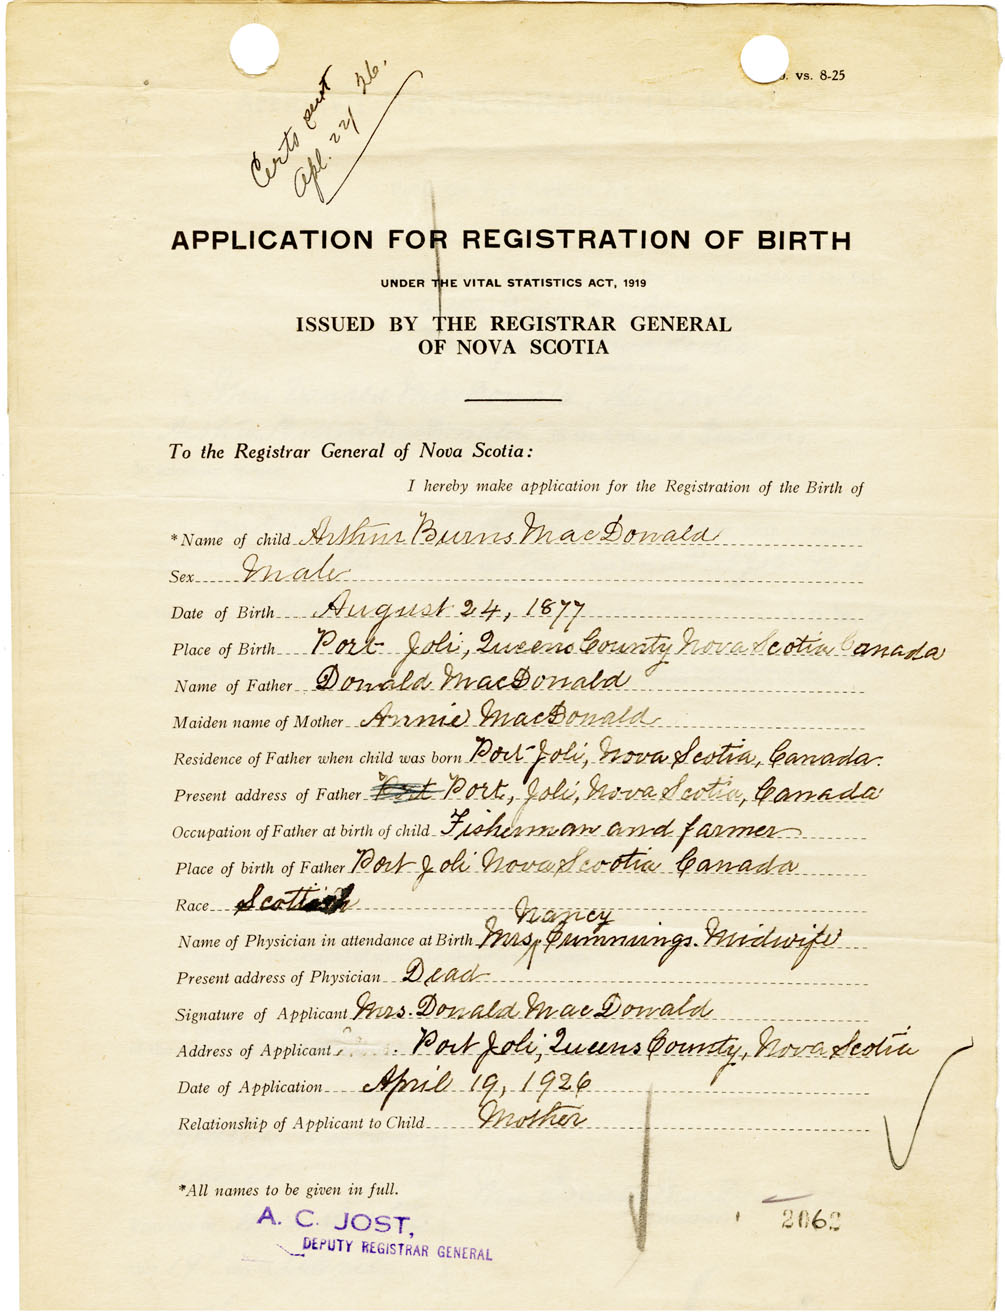 vs. 8-25
Certs sent
Apl. 22/26.
APPLICATION FOR REGISTRATION OF BIRTH
UNDER THE VITAL STATISTICS ACT, 1919
ISSUED BY THE REGISTRAR GENERAL
OF NOVA SCOTIA
To the Registrar General of Nova Scotia:
I hereby make application for the Registration of the Birth of
*Name of child Arthur Burns MacDonald
Sex Male
Date of Birth August 24, 1877
Place of Birth Port Joli, Queens County Nova Scotia Canada
Name of Father Donald MacDonald
Maiden name of Mother Annie MacDonald
Residence of Father when child was born Port Joli, Nova Scotia, Canada.
Present address of Father Port, Joli, Nova Scotia, Canada
Occupation of Father at birth of child Fisherman and farmer
Place of birth of Father Port Joli Nova Scootia Canada
Race Scottish
Nancy
Name of Physician in attendance at Birth Mrs Cummings. Midwife
Present address of Physician Dead
Signature of Applicant Mrs. Donald MacDonald
Address of Applicant Port Joli, Queens County, Nova Scotia
Date of Application April 19, 1926
Relationship of Applicant to Child Mother
*All names to be given in full.
A. C. JOST,
DEPUTY REGISTRAR GENERAL
2062